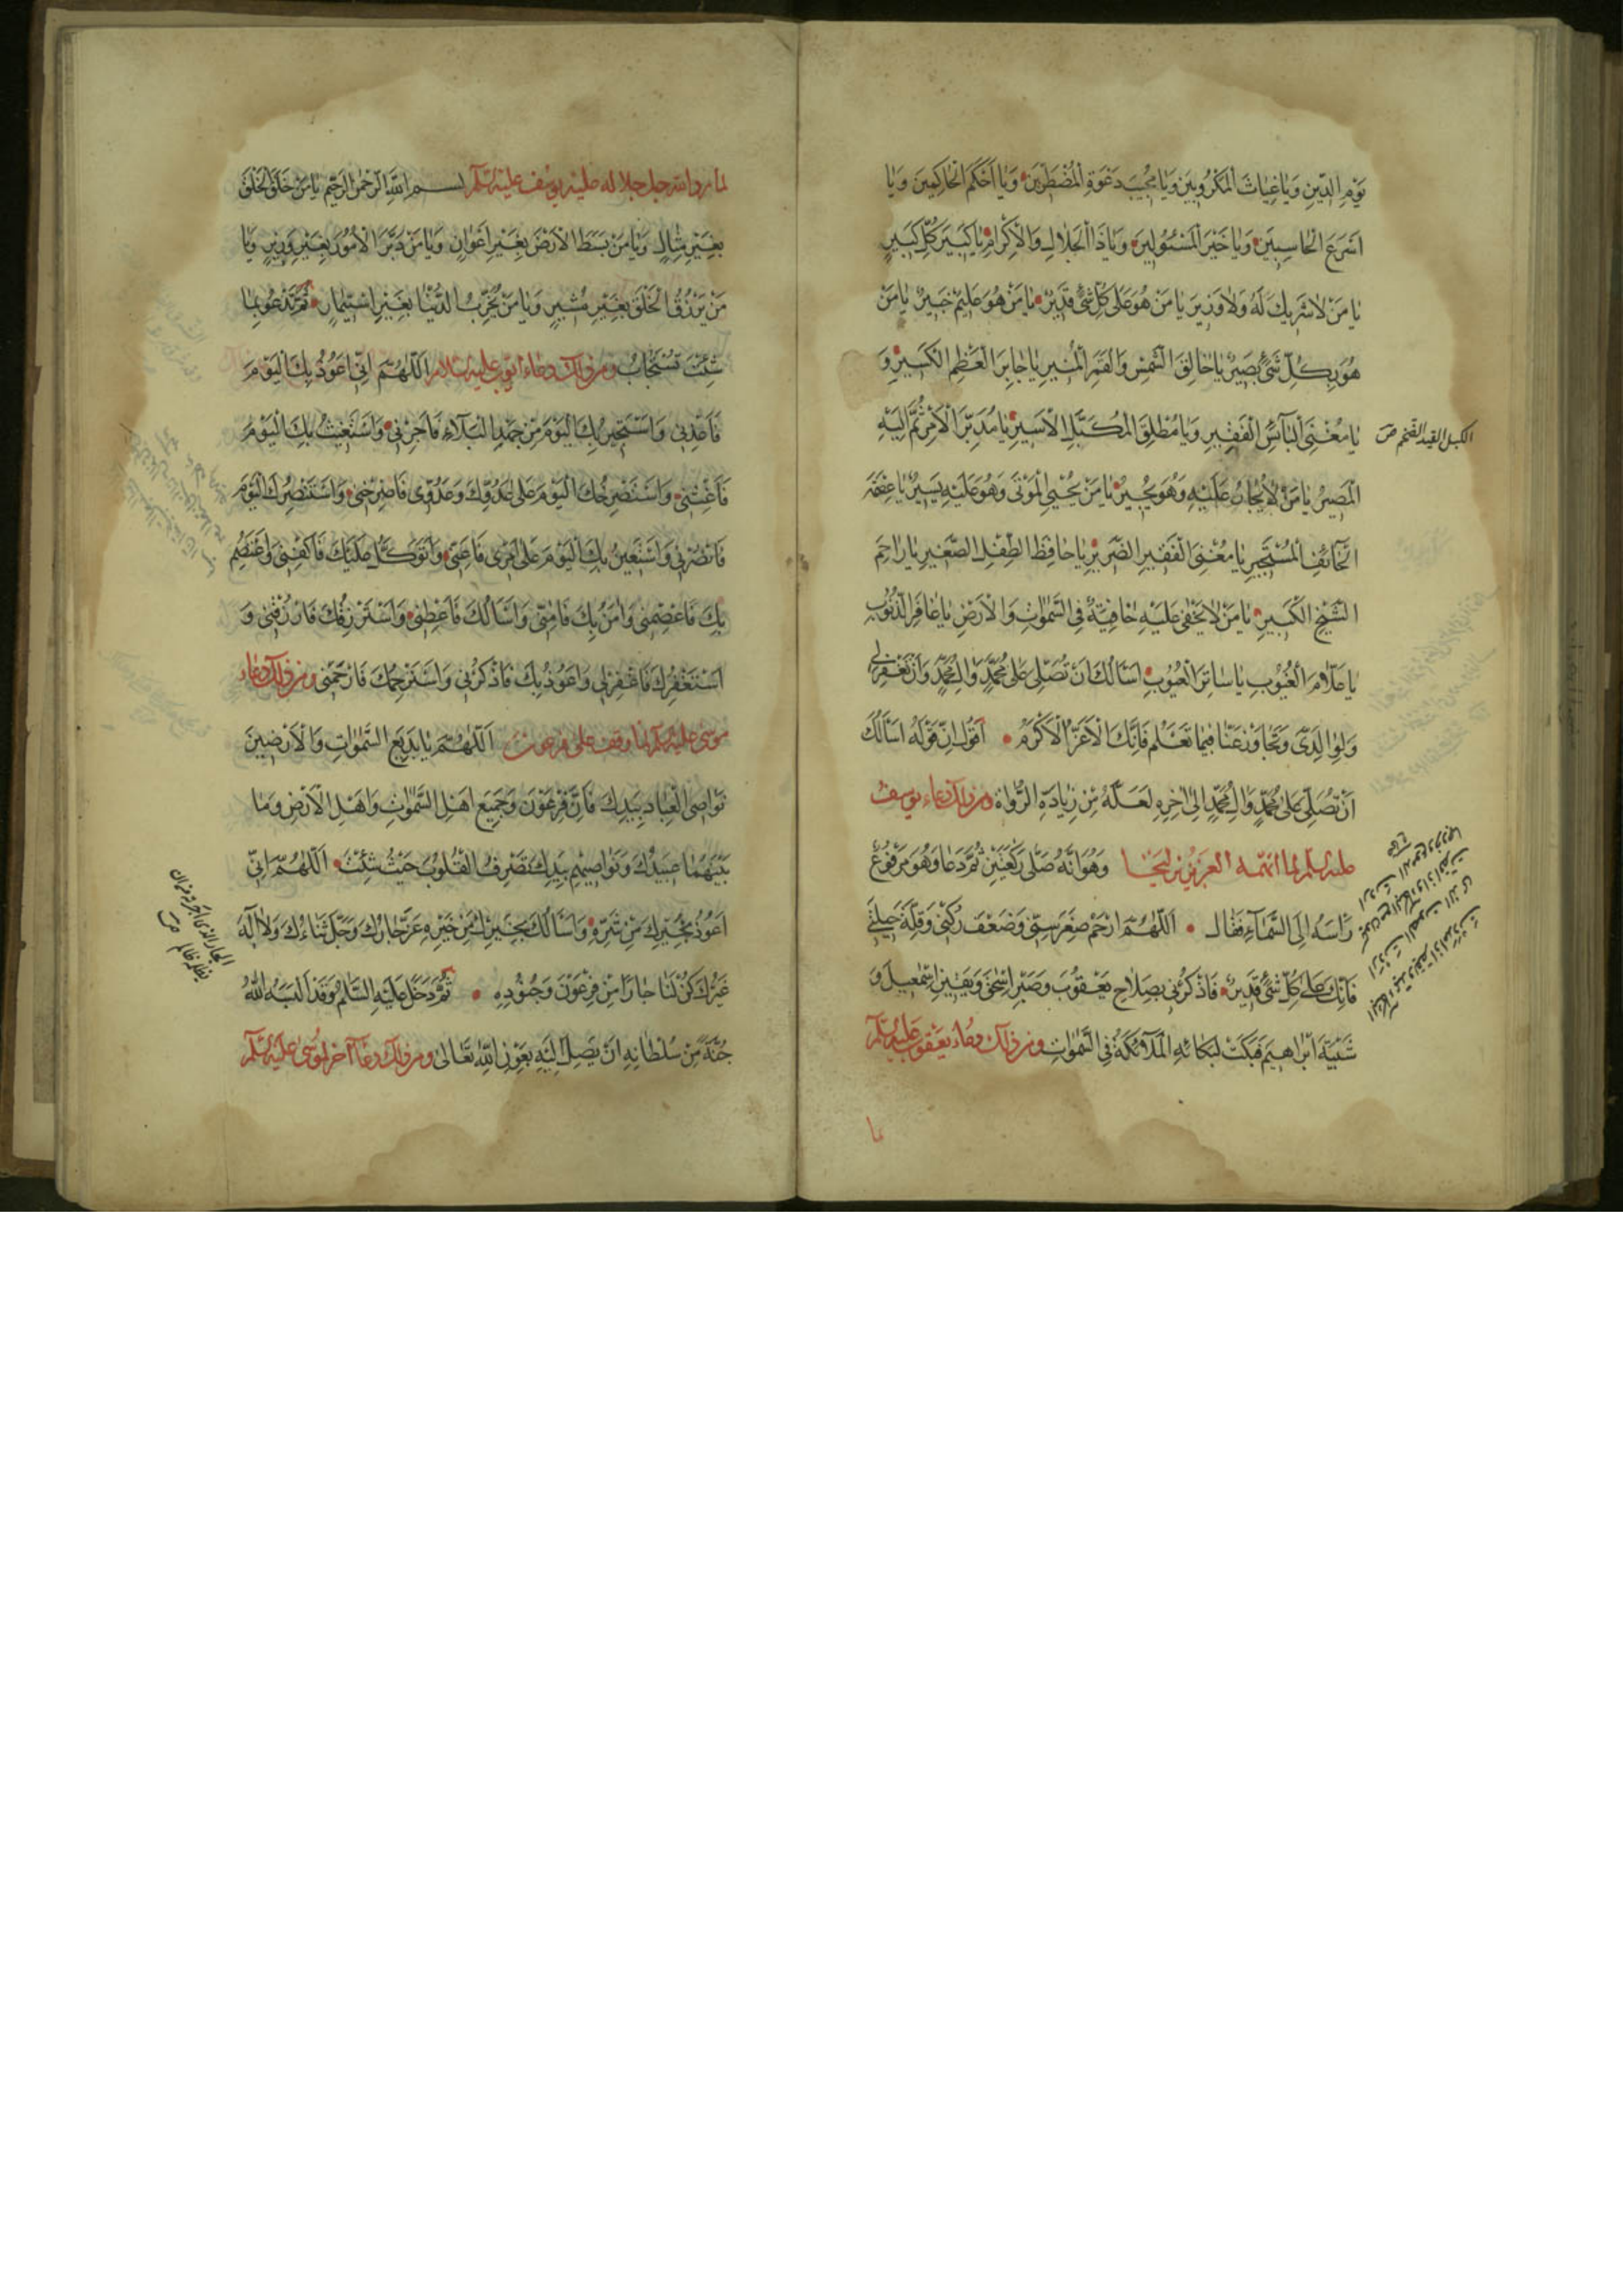 يَوْمِ الدِّينِ وَيَا غِيَاثَ الْمَكْرُوبِينَ وَيَا مُجِيبَ دَعْوَةِ الْمُضْطَرِّينَ وَيَا اَحْكَمَ الْحَاكِمِينَ وَيَا
اَسْرَعَ الْحَاسِبِينَ وَيَا خَيْرَ الْمَسْئُولِينَ وَيَا ذَا الْجَلَالِ وَالْاِكْرَامِ يَا كَبِيرَ كُلِّ كَبِيرٍ
يَا مَنْ لَا شَرِيكَ لَهُ وَلَا وَزِيرَ يَا مَنْ هُوَ عَلَى كُلِّ شَيْءٍ قَدِيرٌ يَا مَنْ هُوَ عَلِيمٌ خَبِيرٌ يَا مَنْ
هُوَ بِكُلِّ شَيْءٍ بَصِيرٌ يَا خَالِقَ الشَّمْسِ وَالْقَمَرِ الْمُنِيرِ يَا جَابِرَ الْعَظْمِ الْكَسِيرِ وَ
يَا مُغْنِيَ الْبَآئِسِ الْفَقِيرِ وَيَا مُطْلِقَ الْمُكَبَّلِ الْاَسِيرِ يَا مُدَبِّرَ الْاَمْرِ ثُمَّ اِلَيْهِ
الكبل القيد الضخم ص
الْمَصِيرُ يَا مَنْ لَا يُجَارُ عَلَيْهِ وَهُوَ يُجِيرُ يَا مَنْ يُحْيِي الْمَوْتَى وَهُوَ عَلَيْهِ يَسِيرٌ يَا عِصْمَةَ
الْخَآئِفِ الْمُسْتَجِيرِ يَا مُغْنِيَ الْفَقِيرِ الضَّرِيرِ يَا حَافِظَ الطِّفْلِ الصَّغِيرِ يَا رَاحِمَ
الشَّيْخِ الْكَبِيرِ يَا مَنْ لَا يَخْفَى عَلَيْهِ خَافِيَةٌ فِي السَّمٰوَاتِ وَالْاَرْضِ يَا غَافِرَ الذُّنُوبِ
يَا عَلَّامَ الْغُيُوبِ يَا سَاتِرَ الْعُيُوبِ اَسْاَلُكَ اَنْ تُصَلِّيَ عَلَى مُحَمَّدٍ وَالِ مُحَمَّدٍ وَاَنْ تَغْفِرَ لِي
وَلِوَالِدَيَّ وَتَجَاوَزْ عَنَّا فِيمَا تَعْلَمُ فَاِنَّكَ الْاَعَزُّ الْاَكْرَمُ اَقُولُ اِنَّ قَوْلَهُ اَسْاَلُكَ
اَنْ تُصَلِّيَ عَلَى مُحَمَّدٍ وَالِ مُحَمَّدٍ اِلَى اٰخِرِهِ لَعَلَّهُ مِنْ زِيَادَةِ الرُّوَاةِ ومن ذلك دعاء يوسف
عليه السلم لما اتهمه العزيز بزليخا وَهُوَ اَنَّهُ صَلَّى رَكْعَتَيْنِ ثُمَّ دَعَا وَهُوَ مَرْفُوعٌ
رَأْسَهُ اِلَى السَّمَآءِ فَقَالَ اَللّٰهُمَّ ارْحَمْ صِغَرَ سِنِّي وَضَعْفَ رُكْنِي وَقِلَّةَ حِيلَتِي
فَاِنَّكَ عَلَى كُلِّ شَيْءٍ قَدِيرٌ فَاذْكُرْنِي بِصَلَاحِ يَعْقُوبَ وَصَبْرِ اِسْحٰقَ وَيَقِينِ اِسْمٰعِيلَ وَ
شَيْبَةِ اِبْرَاهِيمَ فَبَكَتْ لِبُكَائِهِ الْمَلَآئِكَةُ فِي السَّمٰوَاتِ ومن ذلك دعاء يعقوب عليه السلم
لما
لما رد الله جل جلاله عليه يوسف عليه السلم بِسْمِ اللّٰهِ الرَّحْمٰنِ الرَّحِيمِ يَا مَنْ خَلَقَ الْخَلْقَ
بِغَيْرِ مِثَالٍ وَيَا مَنْ بَسَطَ الْاَرْضَ بِغَيْرِ اَعْوَانٍ وَيَا مَنْ دَبَّرَ الْاُمُورَ بِغَيْرِ وَزِيرٍ وَيَا
مَنْ يَرْزُقُ الْخَلْقَ بِغَيْرِ مُشِيرٍ وَيَا مَنْ يُخَرِّبُ الدُّنْيَا بِغَيْرِ اسْتِيمَارٍ ثُمَّ تَدْعُو بِمَا
شِئْتَ تُسْتَجَابُ ومن ذلك دعاء ايوب عليه السلام اَللّٰهُمَّ اِنِّي اَعُوذُ بِكَ الْيَوْمَ
فَاَعِذْنِي وَاَسْتَجِيرُ بِكَ الْيَوْمَ مِنْ جَهْدِ الْبَلَآءِ فَاَجِرْنِي وَاَسْتَغِيثُ بِكَ الْيَوْمَ
فَاَغِثْنِي وَاَسْتَصْرِخُكَ الْيَوْمَ عَلَى عَدُوِّكَ وَعَدُوِّي فَاصْرِخْنِي وَاَسْتَنْصِرُكَ الْيَوْمَ
فَانْصُرْنِي وَاَسْتَعِينُ بِكَ الْيَوْمَ عَلَى اَمْرِي فَاَعِنِّي وَاَتَوَكَّلُ عَلَيْكَ فَاكْفِنِي وَاَعْتَصِمُ
بِكَ فَاعْصِمْنِي وَاٰمَنُ بِكَ فَاٰمِنِّي وَاَسْاَلُكَ فَاَعْطِنِي وَاَسْتَرْزِقُكَ فَارْزُقْنِي وَ
اَسْتَغْفِرُكَ فَاغْفِرْ لِي وَاَعُوذُ بِكَ فَاذْكُرْنِي وَاَسْتَرْحِمُكَ فَارْحَمْنِي ومن ذلك دعاء
موسى عليه السلم لما وقف على فرعون اَللّٰهُمَّ يَا بَدِيعَ السَّمٰوَاتِ وَالْاَرَضِينَ
نَوَاصِي الْعِبَادِ بِيَدِكَ فَاِنَّ فِرْعَوْنَ وَجَمِيعَ اَهْلِ السَّمٰوَاتِ وَاَهْلِ الْاَرْضِ وَمَا
بَيْنَهُمَا عَبِيدُكَ وَنَوَاصِيهِمْ بِيَدِكَ تَصْرِفُ الْقُلُوبَ حَيْثُ شِئْتَ اَللّٰهُمَّ اِنِّي
اَعُوذُ بِخَيْرِكَ مِنْ شَرِّهِ وَاَسْاَلُكَ بِخَيْرِكَ مِنْ خَيْرِهِ عَزَّ جَارُكَ وَجَلَّ ثَنَاءُكَ وَلَا اِلٰهَ
غَيْرُكَ كُنْ لَنَا جَارًا مِنْ فِرْعَوْنَ وَجُنُودِهِ ثُمَّ دَخَلَ عَلَيْهِ السَّلٰمُ وَقَدْ اَلْبَسَهُ اللّٰهُ
جُنَّةً مِنْ سُلْطَانِهِ اَنْ يَصِلَ اِلَيْهِ بِعَوْنِ اللّٰهِ تَعَالَى ومن ذلك دعاء اخر لموسى عليه السلم